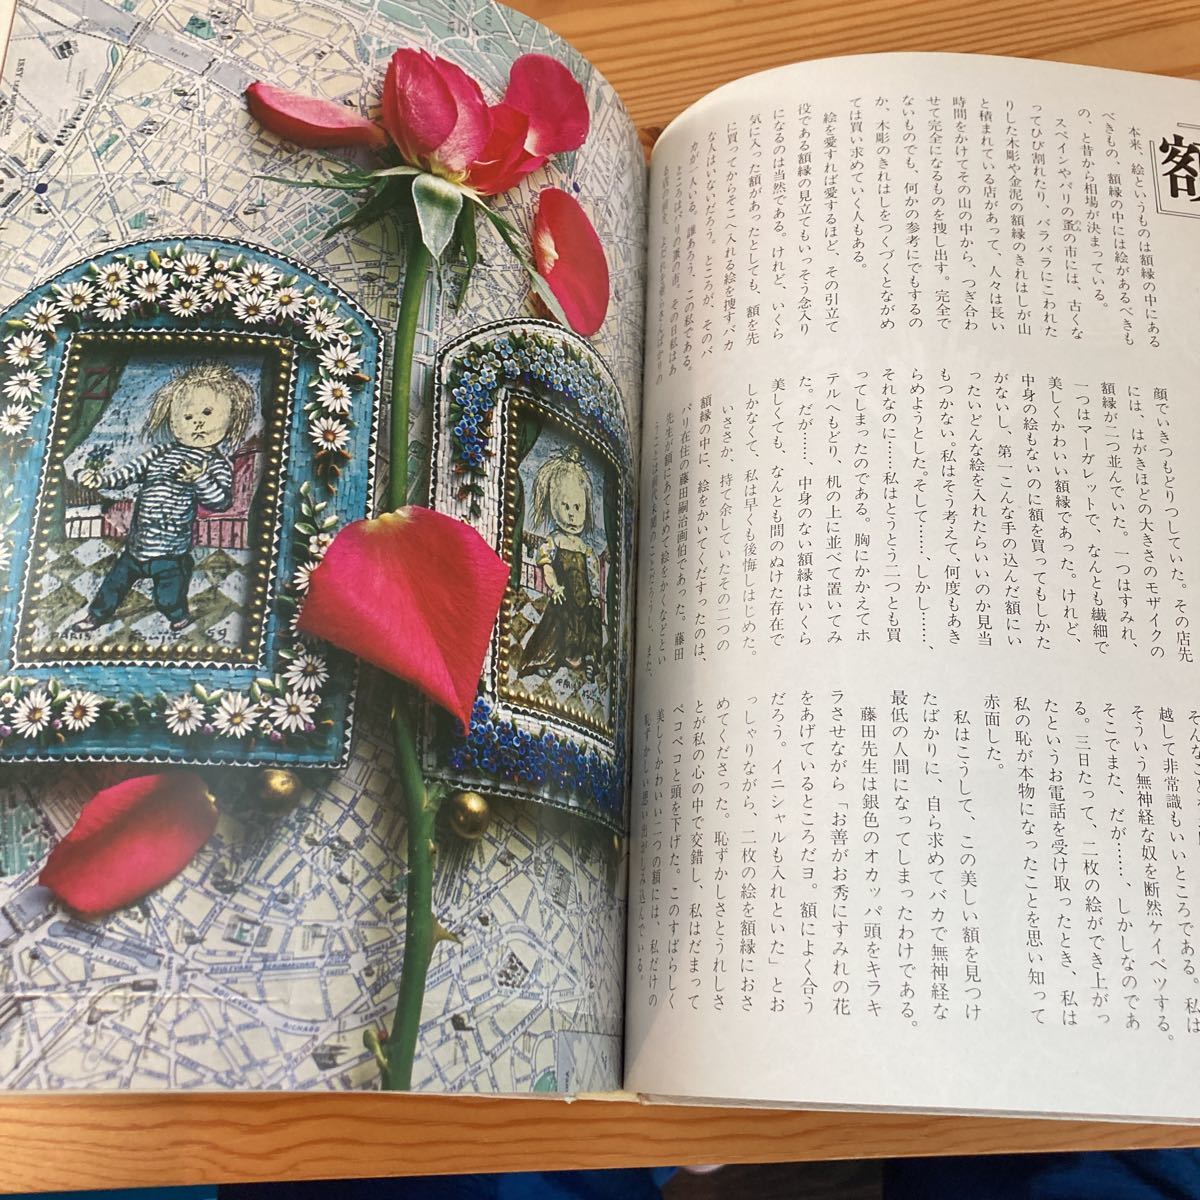 額
本来、絵というものは額縁の中にある
べきもの、額縁の中には絵があるべきも
の、と昔から相場が決まっている。
スペインやパリの蚤の市には、古くな
ってひび割れたり、バラバラにこわれた
りした木彫や金泥の額縁のきれはしが山
と積まれている店があって、人々は長い
時間をかけてその山の中から、つぎ合わ
せて完全になるものを捜し出す。完全で
ないものでも、何かの参考にでもするの
か、木彫のきれはしをつくづくとながめ
ては買い求めていく人もある。
絵を愛すれば愛するほど、その引立て
役である額縁の見立てもいっそう念入り
になるのは当然である。けれど、いくら
気に入った額があったとしても、額を先
に買ってからそこへ入れる絵を捜すバカ
な人はいないだろう。ところが、そのバ
カが一人いる。誰あろう、この私である。
ところはパリの蚤の市。その日私はあ
る店の前を、
顔でいきつもどりつしていた。その店先
には、はがきほどの大きさのモザイクの
額縁が二つ並んでいた。一つはすみれ、
一つはマーガレットで、なんとも繊細で
美しくかわいい額縁であった。けれど、
中身の絵もないのに額を買ってもしかた
がないし、第一こんな手の込んだ額にい
ったいどんな絵を入れたらいいのか見当
もつかない。私はそう考えて、何度もあき
らめようとした。そして……、しかし……、
それなのに……私はとうとう二つとも買
ってしまったのである。胸にかかえてホ
テルへもどり、机の上に並べて置いてみ
た。だが……中身のない額縁はいくら
美しくても、なんとも間のぬけた存在で
しかなくて、私は早くも後悔しはじめた。
いささか、持て余していたその二つの
額縁の中に、絵をかいてくだすったのは、
パリ在住の藤田嗣治画伯であった。藤田
先生が額にあてはめて絵をかくなどとい
うことは前代未聞のことだろうし、また、
越して非常識もいいところである。私は
そういう無神経な奴を断然ケイベツする。
そこでまた、だが……、しかしなのであ
る。三日たって、二枚の絵ができ上がっ
たというお電話を受け取ったとき、私は
私の恥が本物になったことを思い知って
赤面した。
私はこうして、この美しい額を見つけ
たばかりに、自ら求めてバカで無神経な
最低の人間になってしまったわけである。
藤田先生は銀色のオカッパ頭をキラキ
ラさせながら「お善がお秀にすみれの花
をあげているところだヨ。額によく合う
だろう。イニシャルも入れといた」とお
っしゃりながら、二枚の絵を額縁におさ
めてくださった。恥ずかしさとうれしさ
とが私の心の中で交錯し、私はだまって
ペコペコと頭を下げた。このすばらしく
美しくかわいい二つの額には、私だけの
恥ずかしい思い出がしみ込んでいる。
PARIS
59
ISSY
RICHARD
LENOIR
BOULEVARD